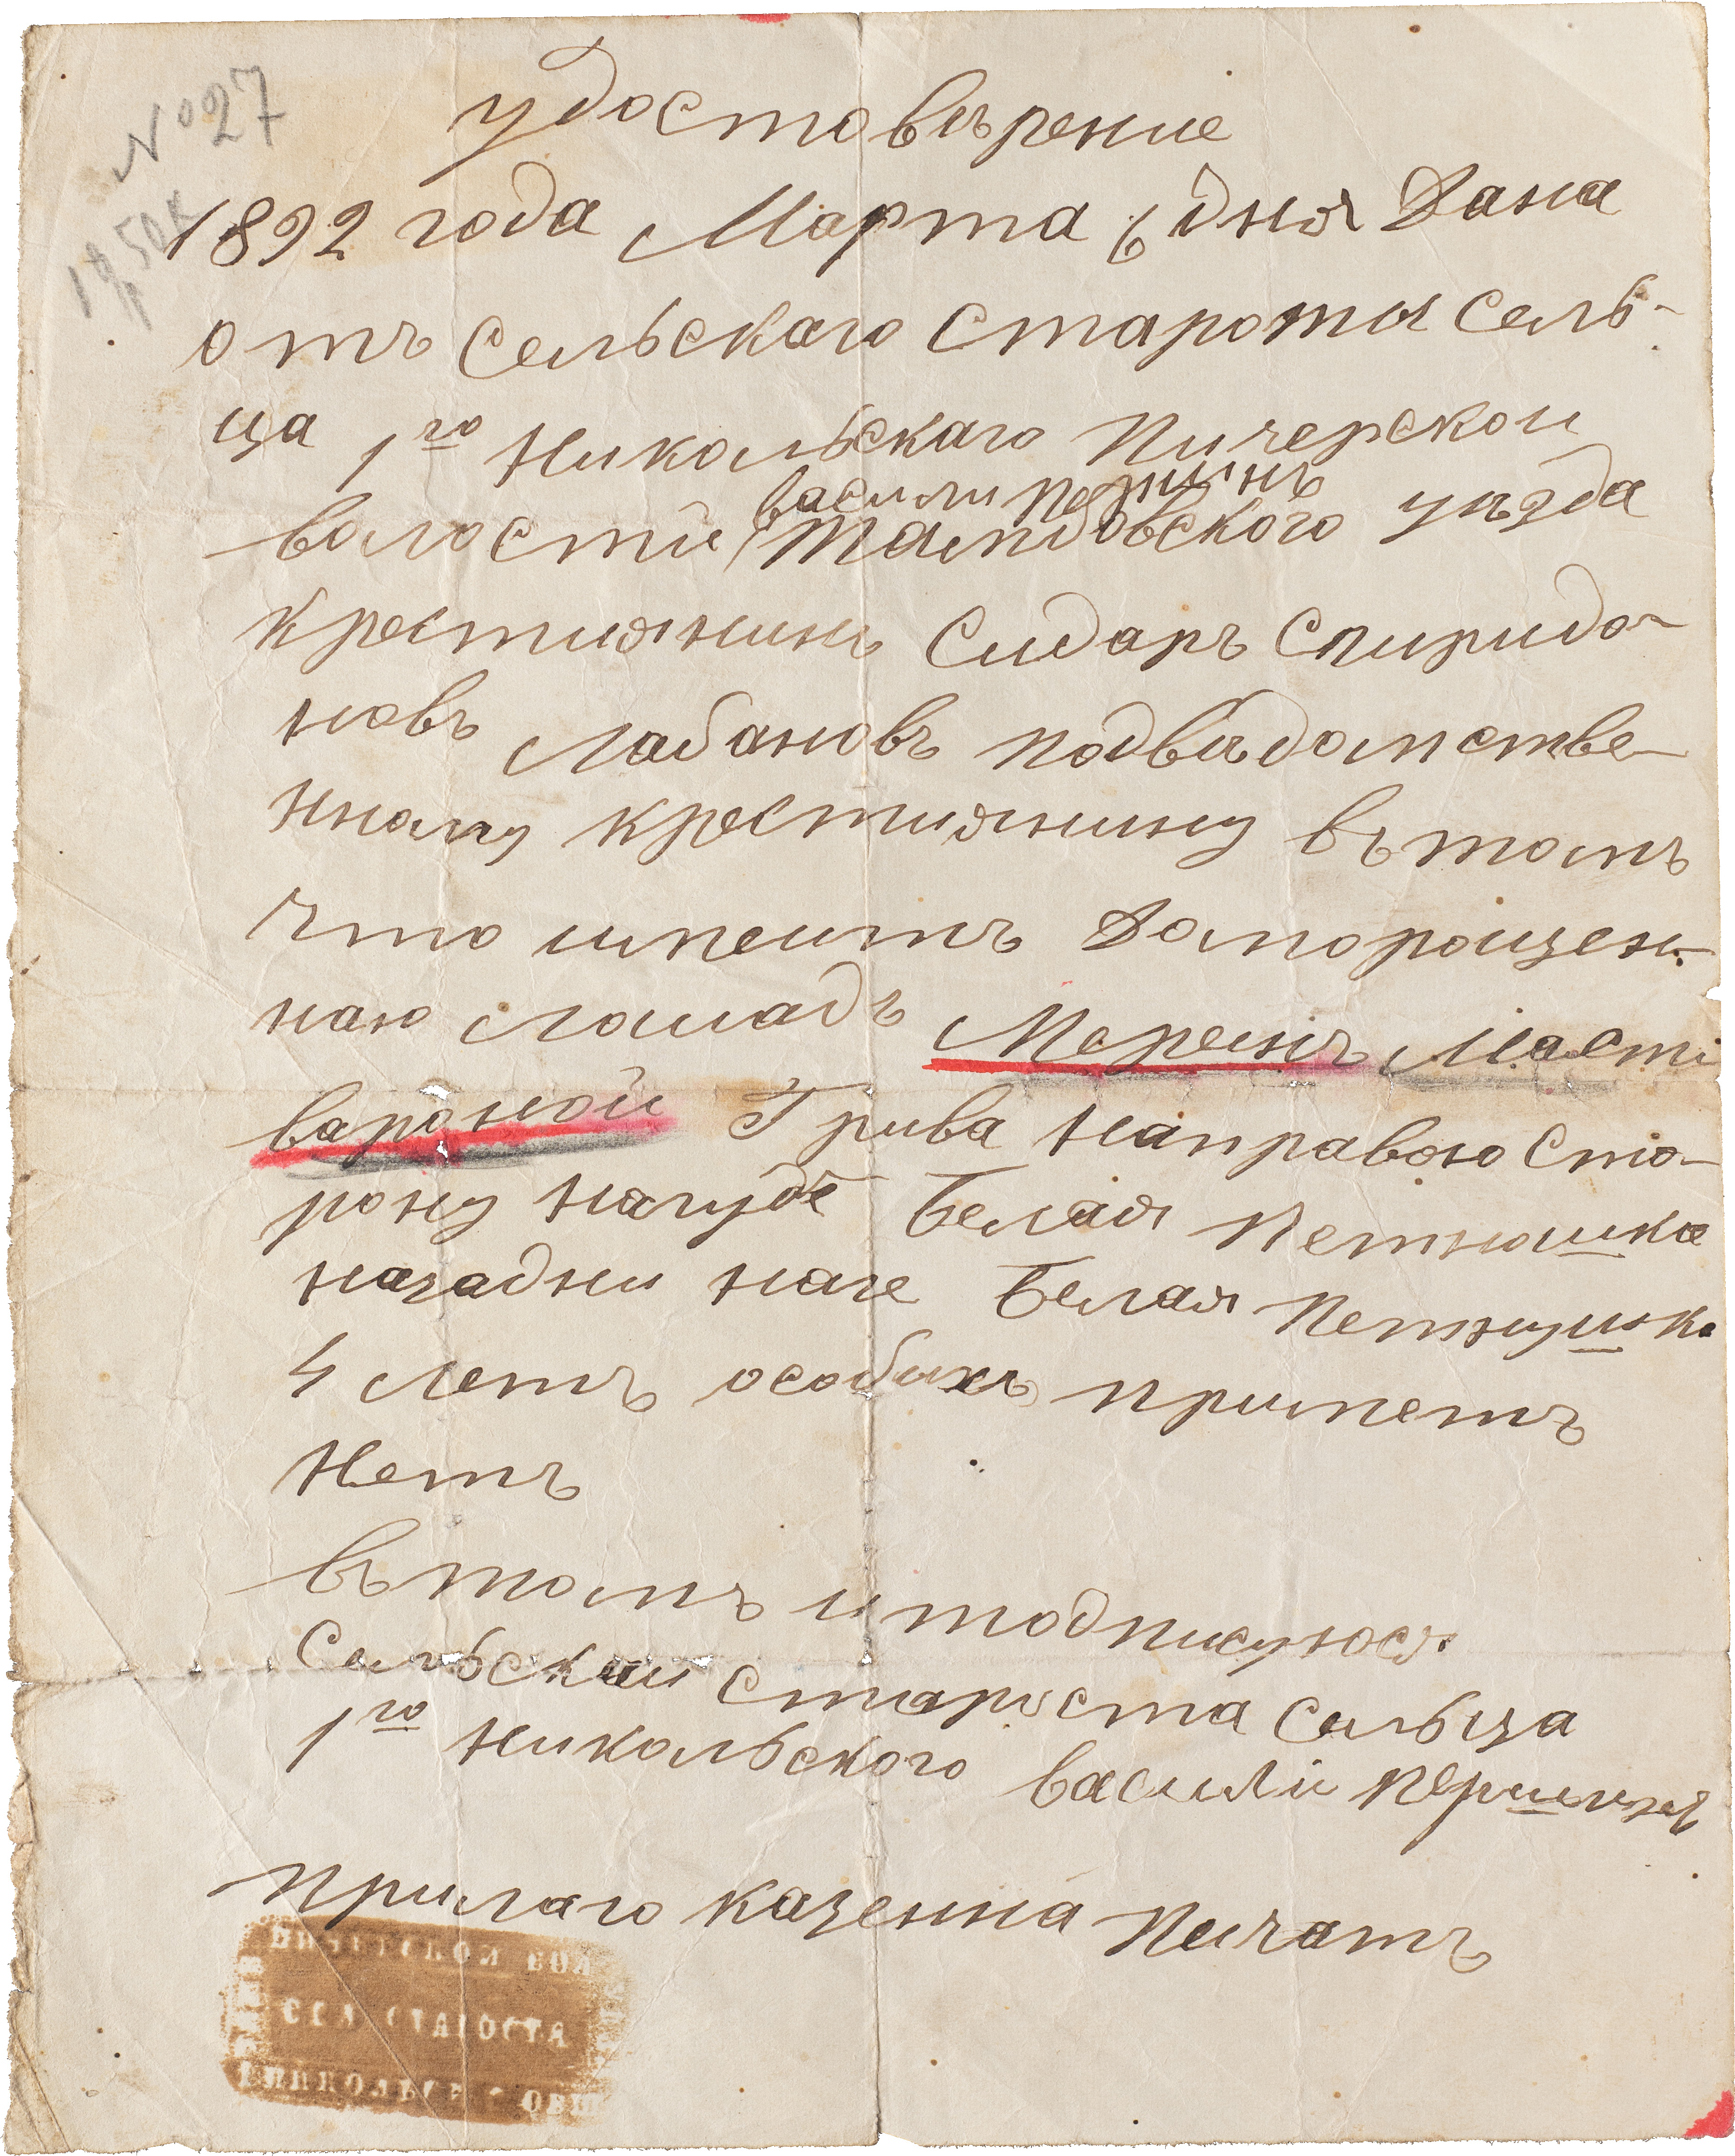 № 27
удостовѣрение
1892 года Марта 6 дня Дана
отъ Сельскаго Старосты Сель-
ца 1го Никольскаго Пичерской
василий Першинъ
волости Тамбовского уѣзда
крестиянинъ Сидаръ Спиридо-
новъ Лабановъ подвѣдомстве-
нному крестиянину вътомъ
Что имеитъ Доморощен-
наю лошадъ Меринъ Масти
вароной Грива направою Сто-
рону нагубе Белая Петнашка
назадни наге Белая Петнушка
4 летъ особыхъ приметъ
Нетъ
вътомъ и подписуюся
Сельский староста Сельца
1го Никольского василий Першинъ
Прилаго казенна Печатъ
СТАРОСТА